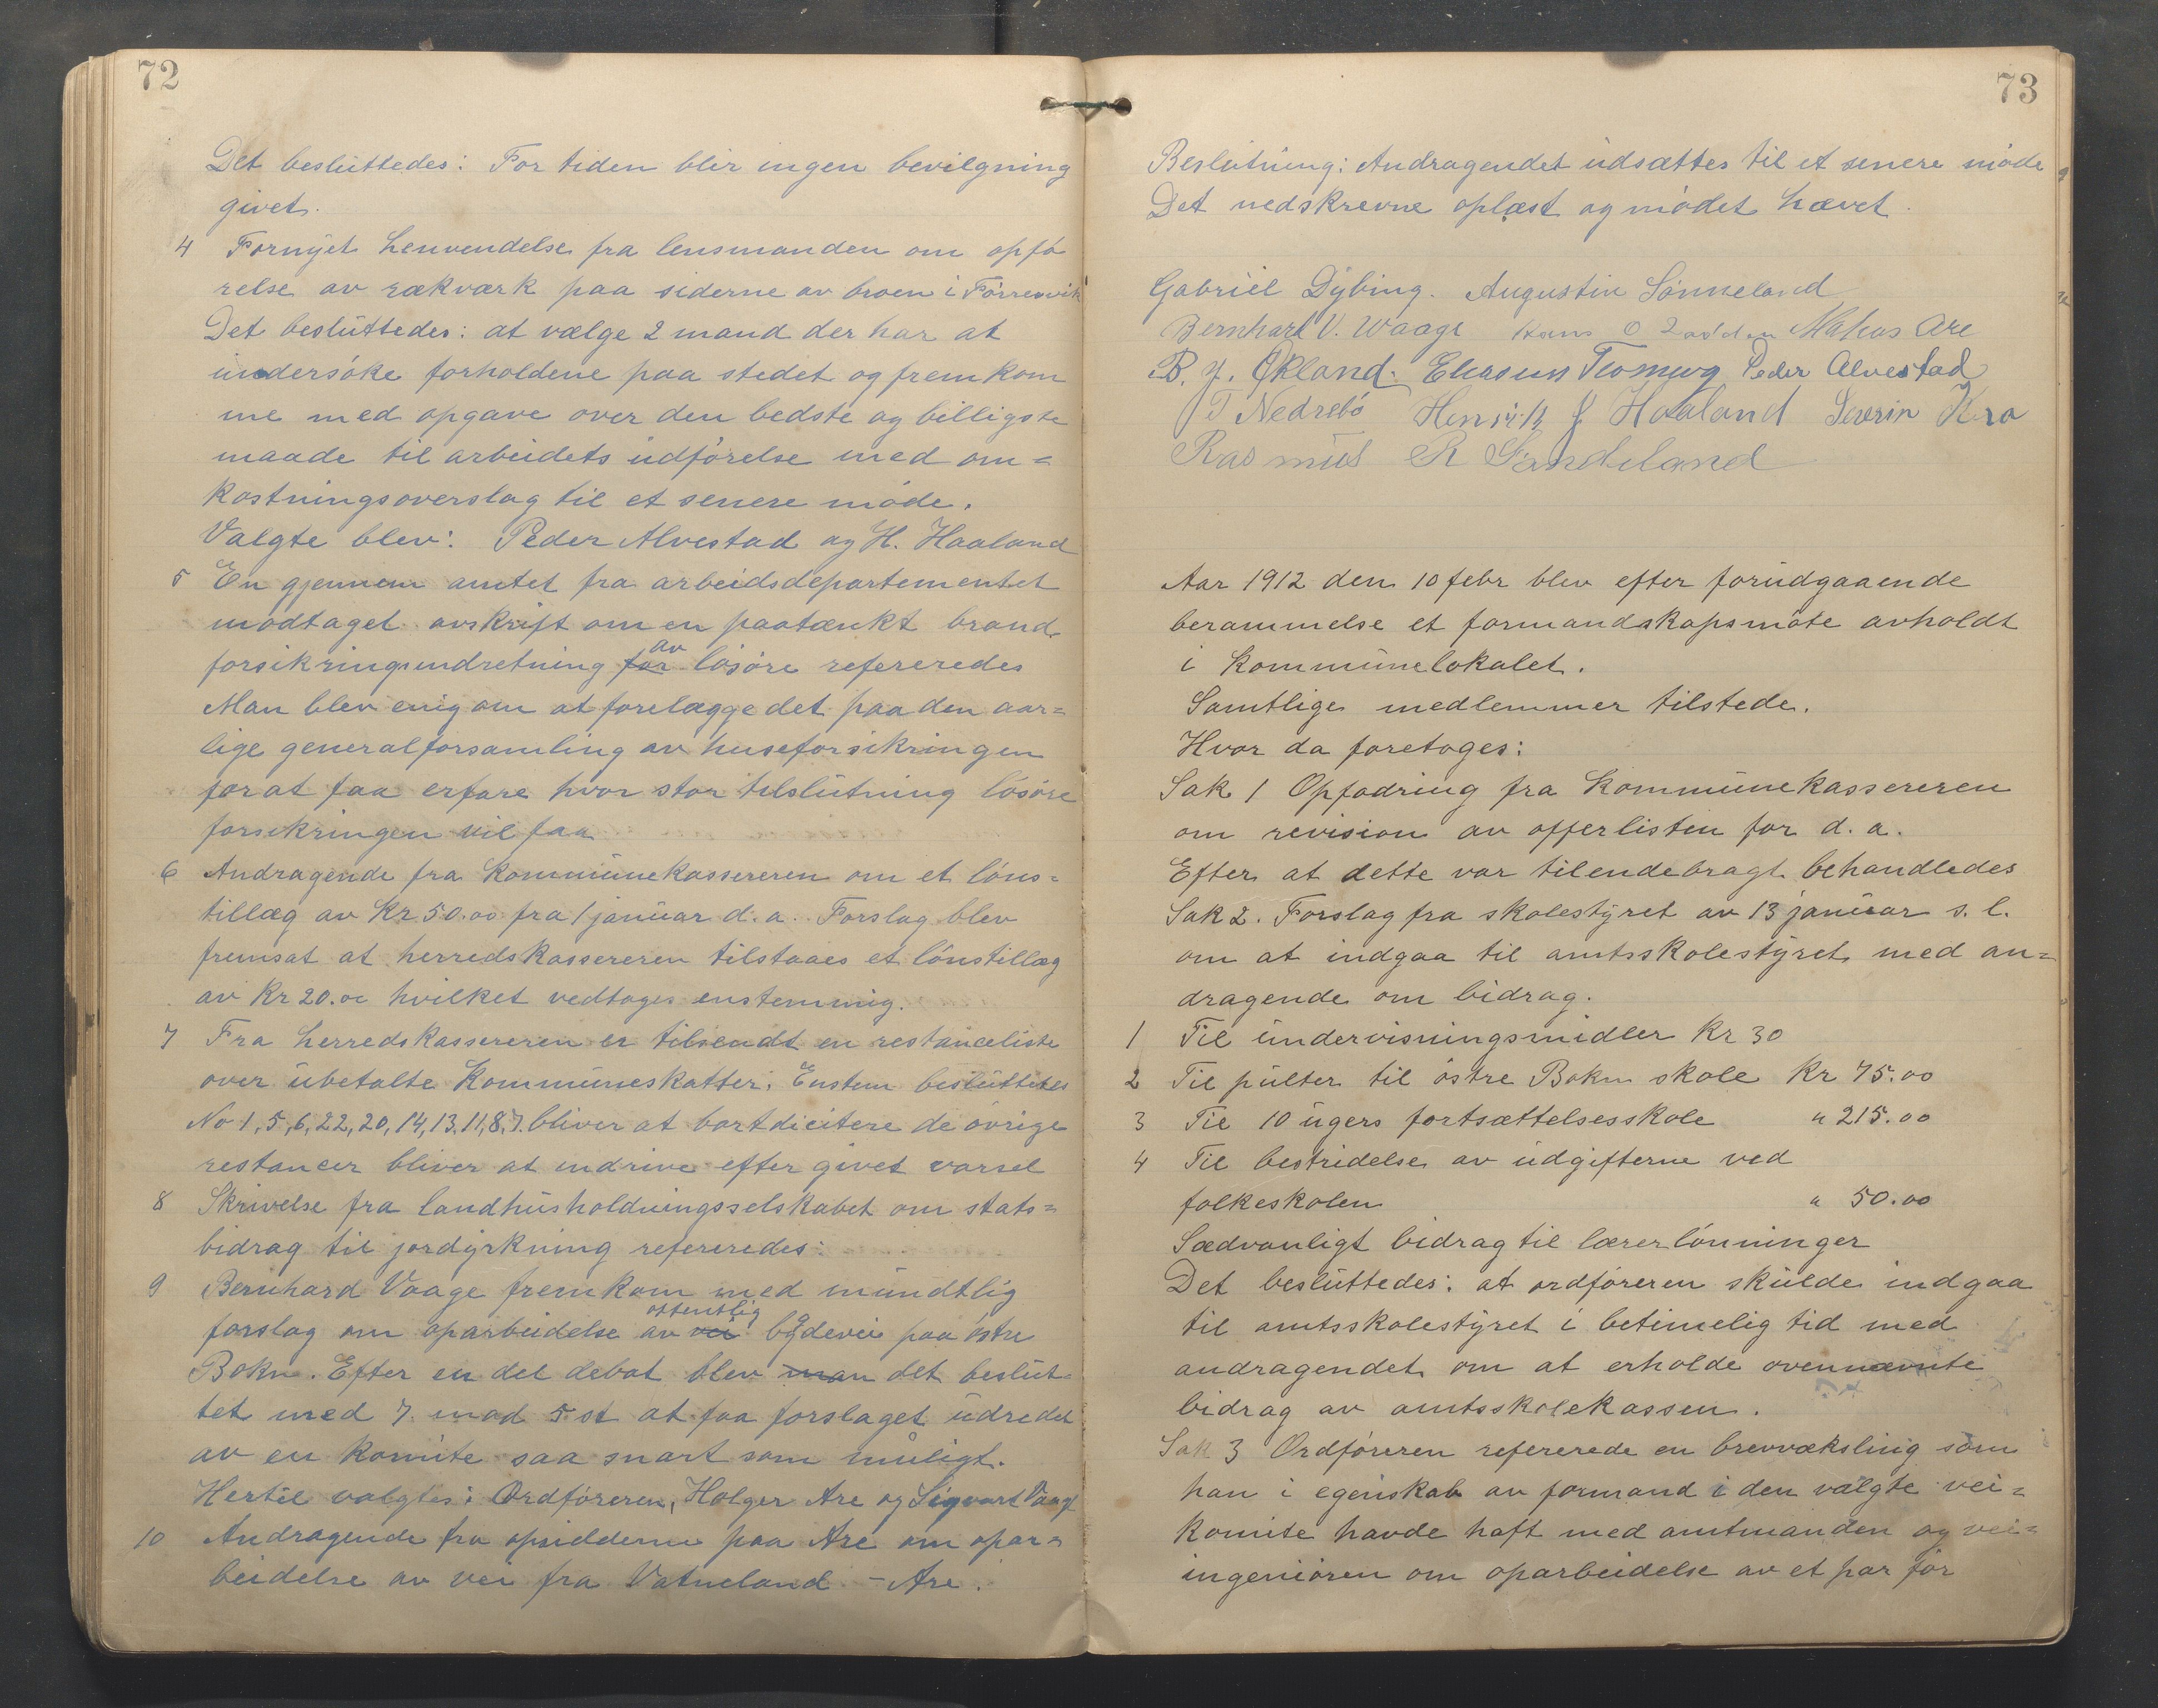 72
Det besluttedes: For tiden blir ingen bevilgning
givet.
4 Fornyet henvendelse fra lensmanden om opfø
relse av rækværk paa siderne av broen i Førresvik
Det besluttedes: at vælge 2 mand der har at
undersøke forholdene paa stedet og fremkom
me med opgave over den bedste og billigste
maade til arbeidets udførelse med om=
kostningsoverslag til et senere møde.
Valgte blev: Peder Alvestad og H. Haaland
5 En gjennem amtet fra arbeidsdepartementet
modtaget avskrift om en paatænkt brand-
forsikringsindretning for av løsøre refereredes
Man blev enig om at forelægge det paa den aar=
lige generalforsamling av huseforsikringen
for at faa erfare hvor stor tilslutning løsøre
forsikringen vil faa
6 Andragende fra kommunekassereren om et løns=
tillæg av Kr 50.00 fra 1 januar d. a. Forslag blev
fremsat at herredskassereren tilstaaes et lønstillæg
av Kr 20.00 hvilket vedtoges enstemmig.
7 Fra herredskassereren er tilsendt en restanceliste
over ubetalte kommuneskatter. Enstem besluttedes
No 1, 5, 6, 22, 20, 14, 13, 11, 8, 7. bliver at bortdicitere de øvrige
restancer bliver at indrive efter givet varsel
8 Skrivelse fra landhusholdningsselskabet om stats=
bidrag til jordyrkning refereredes.
9 Bernhard Vaage fremkom med mundtlig
forslag om oparbeidelse av vei offentlig bygdevei paa østre
Bokn. Efter en del debat blev man det beslut-
tet med 7 mod 5 st at faa forslaget udredet
av en komite saa snart som muligt.
Hertil valgtes: Ordføreren, Holger Are og Sigvart Vaage
10 Andragende fra opsidderne paa Are om opar=
beidelse av vei fra Vatneland - Are.
73
Beslutning: Andragendet udsættes til et senere møde
Det nedskrevne oplæst og mødet hævet.
Gabriel Dybing. Augustin Sønneland
Bernhard V. Waage Hans O Lodden Mahus Are
B. J. Økland. Eliasen Peder Alvestad
T Nedrebø Henrik J Haaland Severin Kro
Rasmus R Grindeland
Aar 1912 den 10 febr blev efter forudgaaende
berammelse et formandskapsmøte avholdt
i kommunelokalet.
Samtlige medlemmer tilstede.
Hvor da foretoges:
Sak 1 Opfodring fra kommunekassereren
om revision av offerlisten for d. a.
Efter at dette var tilendebragt behandledes
Sak 2. Forslag fra skolestyret av 13 januar s. l.
om at indgaa til amtsskolestyret med an=
dragende om bidrag.
1 Til undervisningsmidler Kr 30
2 Til pulter til østre Bokn skole Kr 75.00
3 Til 10 ugers fortsættelsesskole " 215.00
4 Til bestridelse av udgifterne ved
folkeskolen " 50.00
Sædvanligt bidrag til lærerlønninger
Det besluttedes: at ordføreren skulde indgaa
til amtsskolestyret i betimelig tid med
andragendet om at erholde ovennævnte
bidrag av amtsskolekassen.
Sak 3 Ordføreren refererede en brevvæksling som
han i egenskab av formand i den valgte vei=
komite havde haft med amtmanden og vei=
ingeniøren om oparbeidelse av et par før